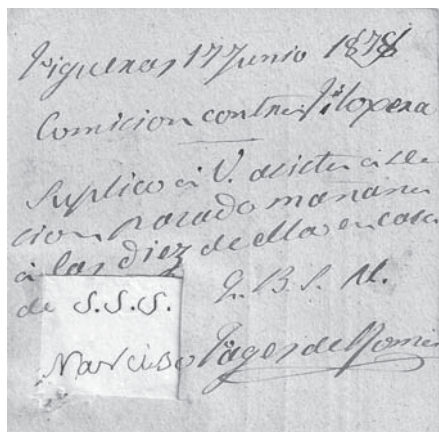 Figueras 17 Junio 1878
Comicion contra filopera
Suplico à V. asista à se
cion parado manana
à las diez de ella en casa
de S.S.S. Q. B. S. M.
Narciso Pages de Romà